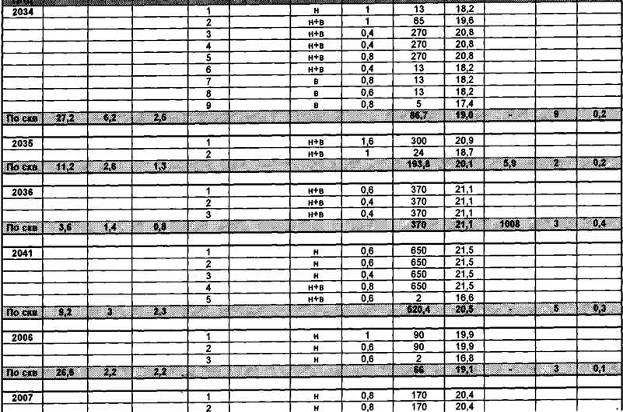 2034 1 н 1 13 18,2
2 н+в 1 65 19,6
3 н+в 0,4 270 20,8
4 н+в 0,4 270 20,8
5 н+в 0,8 270 20,8
6 н+в 0,4 13 18,2
7 в 0,8 13 18,2
8 в 0,6 13 18,2
9 в 0,8 5 17,4
По скв 27,2 6,2 2,5 86,7 19,0 - 9 0,2
2035 1 н+в 1,6 300 20,9
2 н+в 1 24 18,7
По скв 11,2 2,6 1,3 193,8 20,1 5,9 2 0,2
2036 1 н+в 0,6 370 21,1
2 н+в 0,4 370 21,1
3 н+в 0,4 370 21,1
По скв 3,6 1,4 0,8 370 21,1 1008 3 0,4
2041 1 н 0,6 650 21,5
2 н 0,6 650 21,5
3 н 0,4 650 21,5
4 н+в 0,8 650 21,5
5 н+в 0,6 2 16,6
По скв 9,2 3 2,3 520,4 20,5 - 5 0,3
2006 1 н 1 90 19,9
2 н 0,6 90 19,9
3 н 0,6 2 16,8
По скв 26,6 2,2 2,2 66 19,1 - 3 0,1
2007 1 н 0,8 170 20,4
2 н 0,8 170 20,4